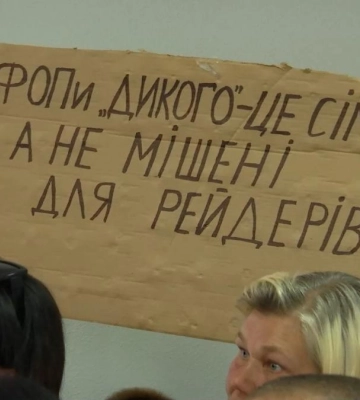 ФОПи „ДИКОГО"-ЦЕ
А НЕ МІШЕНІ
ДЛЯ РЕЙДЕРІВ